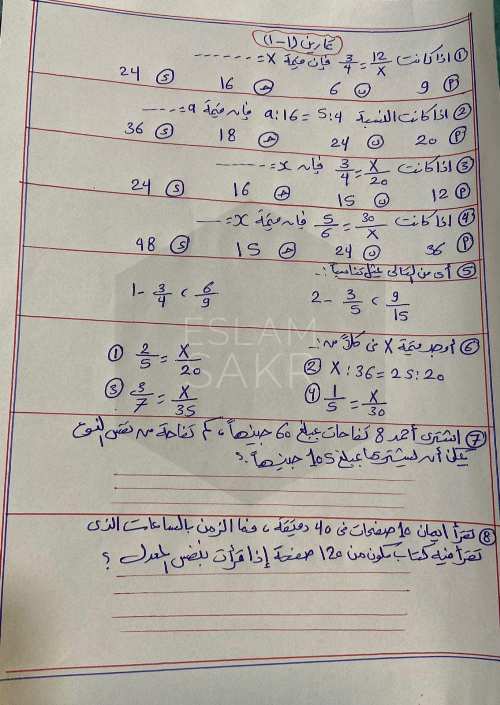 تمارين (1-1)
① اذا كانت 3/4 = 12/x فإن قيمة x = ------
Ⓟ 9 ⓝ 6 ⓗ 16 Ⓢ 24
② اذا كانت النسبة a:16 = 5:4 فإن قيمة a = ----
Ⓟ 20 ⓝ 24 ⓗ 18 Ⓢ 36
③ اذا كانت 3/4 = x/20 فإن x = ------
Ⓟ 12 ⓝ 15 ⓗ 16 Ⓢ 24
④ اذا كانت 5/6 = 30/x فإن قيمة x = ---
Ⓟ 36 ⓝ 24 ⓗ 15 Ⓢ 48
⑤ أى من التالى يمثل تناسباً :-
1- 3/4 , 6/9 2- 3/5 , 9/15
⑥ أوجد قيمة x فى كلاً من :-
① 2/5 = x/20 ② x : 36 = 25 : 20
③ 3/7 = x/35 ④ 1/5 = x/30
⑦ اشترى أحمد 8 تفاحات بمبلغ 60 جنيهاً، كم تفاحة من نفس النوع
يمكن أن يشتريها بمبلغ 105 جنيهاً ؟
⑧ تقرأ ايمان 10 صفحات فى 40 دقيقة، فما الزمن بالساعات الذى
تقرأ فيه كتاب مكون من 120 صفحة إذا قرأت بنفس المعدل ؟
ESLAM
SAKR